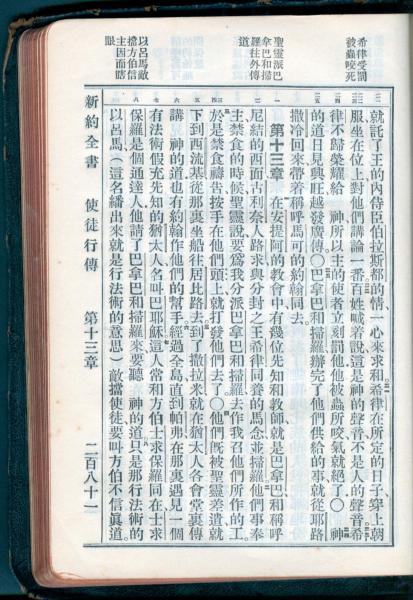 希律受罰
被蟲咬死
聖靈派巴
拿巴和掃
羅往外傳
道
以呂馬敵
擋方伯信
主因而瞎
眼
就託了王的內侍臣伯拉斯都的情一心來求和希律在所定的日子穿上朝
服坐在位上對他們講論一番百姓喊着說這是神的聲音不是人的聲音希
律不歸榮耀給 神所以主的使者立刻罰他他被蟲所咬氣就絕了〇 神
的道日見興旺越發廣傳〇巴拿巴和掃羅辦完了他們供給的事就從耶路
撒冷回來帶着稱呼馬可的約翰同去
第十三章 在安提阿的教會中有幾位先知和教師就是巴拿巴和稱呼
尼結的西面古利奈人路求與分封之王希律同養的馬念並掃羅他們事奉
主禁食的時候聖靈說要爲我分派巴拿巴和掃羅去作我召他們所作的工
於是禁食禱告按手在他們頭上就打發他們去了〇他們既被聖靈差遣就
下到西流基從那裏坐船往居比路去到了撒拉米就在猶太人各會堂裏傳
講 神的道也有約翰作他們的幫手經過全島直到帕弗在那裏遇見一個
有法術假充先知的猶太人名叫巴耶穌這人常和方伯士求保羅同在士求
保羅是個通達人他請了巴拿巴和掃羅來要聽 神的道只是那行法術的
以呂馬(這名繙出來就是行法術的意思)敵擋使徒要叫方伯不信眞道
新約全書 使徒行傳 第十三章 二百八十一